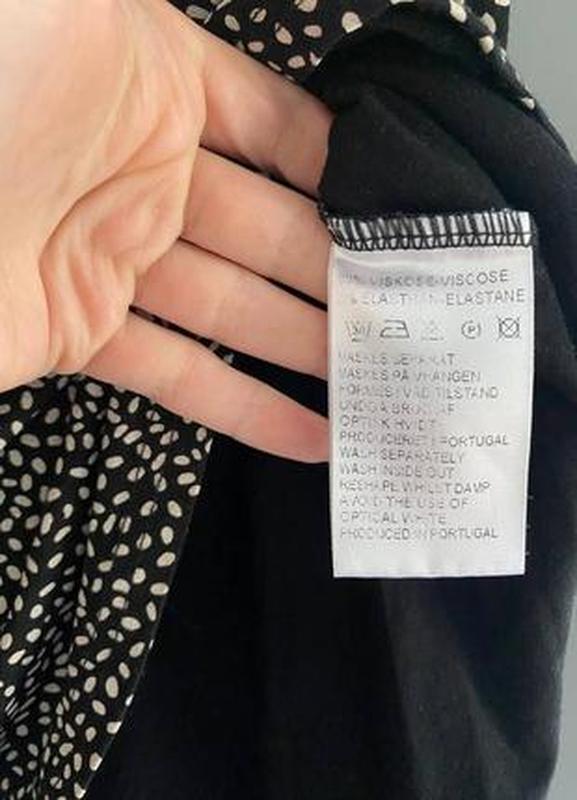 VISKOSE-VISCOSE
ELASTHAN-ELASTANE
P
VASKES SEPARAT
VASKES PÅ VRANGEN
FORMES I VÅD TILSTAND
UNDGÅ BRUG AF
OPTISK HVIDT
PRODUCERET I PORTUGAL
WASH SEPARATELY
WASH INSIDE OUT
RESHAPE WHILST DAMP
AVOID THE USE OF
OPTICAL WHITE
PRODUCED IN PORTUGAL